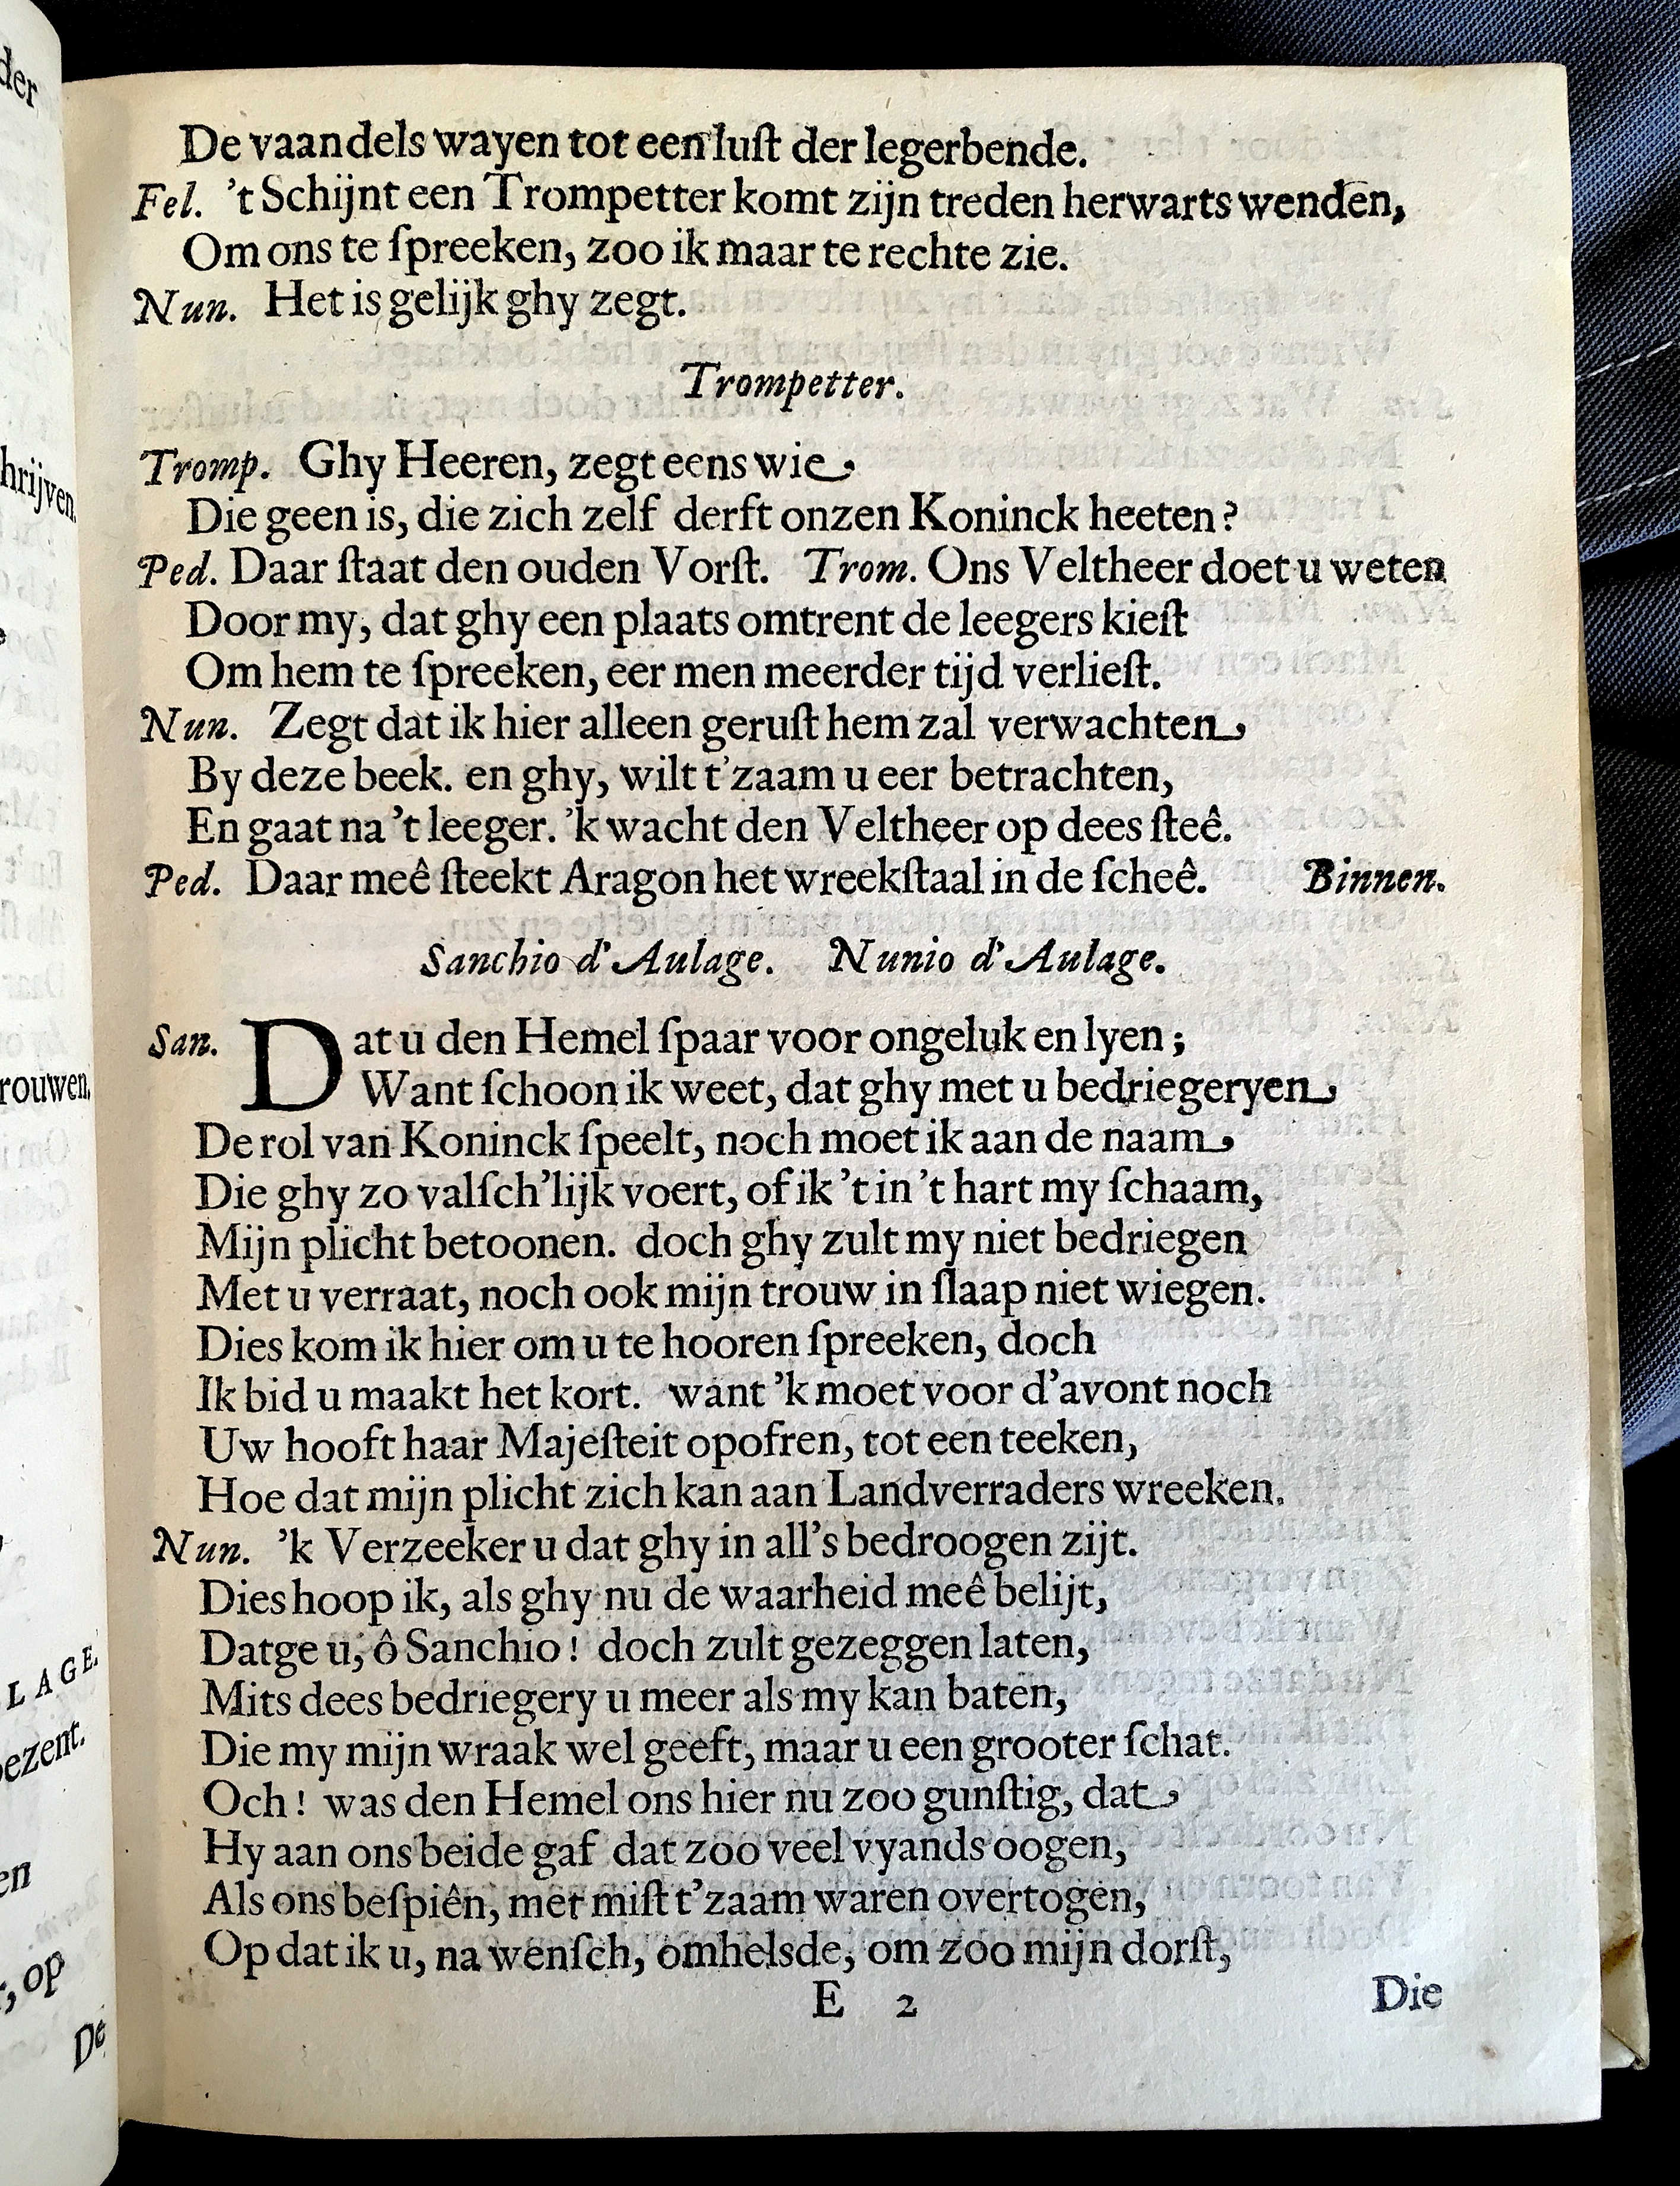 De vaandels wayen tot een luſt der legerbende.
Fel. 't Schijnt een Trompetter komt zijn treden herwarts wenden,
Om ons te ſpreeken, zoo ik maar te rechte zie.
Nun. Het is gelijk ghy zegt.
Trompetter.
Tromp. Ghy Heeren, zegt eens wie
Die geen is, die zich zelf derft onzen Koninck heeten?
Ped. Daar ſtaat den ouden Vorſt. Trom. Ons Veltheer doet u weten
Door my, dat ghy een plaats omtrent de leegers kieſt
Om hem te ſpreeken, eer men meerder tijd verlieſt.
Nun. Zegt dat ik hier alleen geruſt hem zal verwachten
By deze beek. en ghy, wilt t'zaam u eer betrachten,
En gaat na 't leeger. 'k wacht den Veltheer op dees ſteê.
Ped. Daar meê ſteekt Aragon het wreekſtaal in de ſcheê. Binnen.
Sanchio d'Aulage. Nunio d'Aulage.
San. Dat u den Hemel ſpaar voor ongeluk en lyen;
Want ſchoon ik weet, dat ghy met u bedriegeryen
De rol van Koninck ſpeelt, noch moet ik aan de naam
Die ghy zo valſch'lijk voert, of ik 't in 't hart my ſchaam,
Mijn plicht betoonen. doch ghy zult my niet bedriegen
Met u verraat, noch ook mijn trouw in ſlaap niet wiegen.
Dies kom ik hier om u te hooren ſpreeken, doch
Ik bid u maakt het kort. want 'k moet voor d'avont noch
Uw hooft haar Majeſteit opofren, tot een teeken,
Hoe dat mijn plicht zich kan aan Landverraders wreeken.
Nun. 'k Verzeeker u dat ghy in all's bedroogen zijt.
Dies hoop ik, als ghy nu de waarheid meê belijt,
Datge u, ô Sanchio! doch zult gezeggen laten,
Mits dees bedriegery u meer als my kan baten,
Die my mijn wraak wel geeft, maar u een grooter ſchat.
Och! was den Hemel ons hier nu zoo gunſtig, dat
Hy aan ons beide gaf dat zoo veel vyands oogen,
Als ons beſpiên, met miſt t'zaam waren overtogen,
Op dat ik u, na wenſch, omhelsde, om zoo mijn dorſt,
E 2 Die